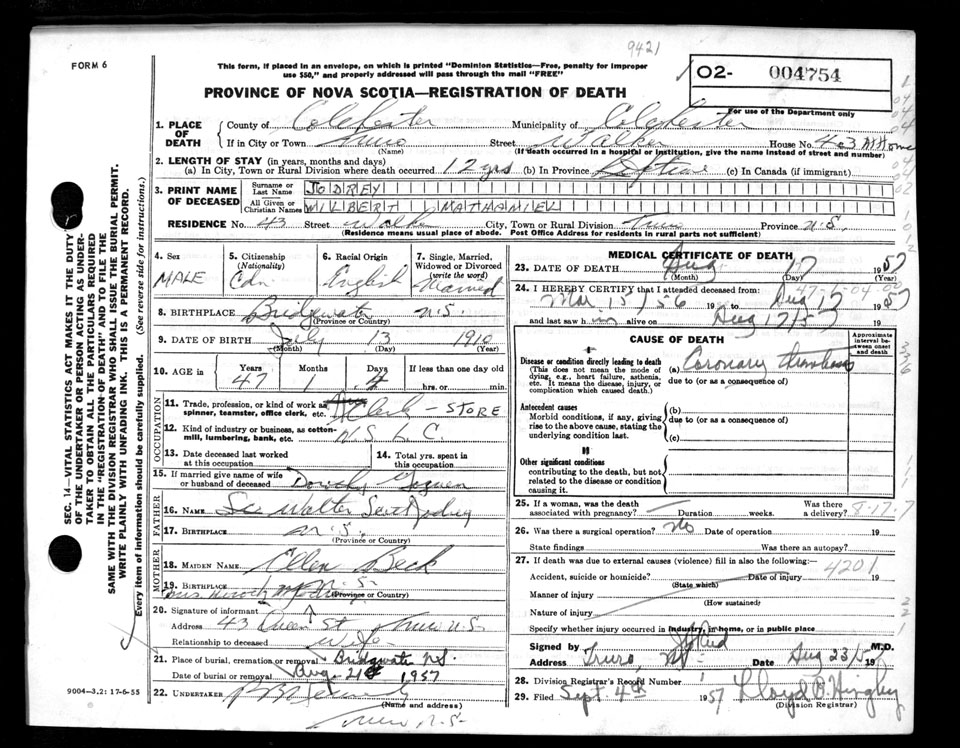 9421
FORM 6
This form, if placed in an envelope, on which is printed "Dominion Statistics—Free, penalty for improper
use $50," and properly addressed will pass through the mail "FREE"
O2- 004754
PROVINCE OF NOVA SCOTIA—REGISTRATION OF DEATH
For use of the Department only
1. PLACE OF DEATH
County of Colchester Municipality of Colchester
If in City or Town Truro (Name) Street Walker House No.
(If death occurred in a hospital or institution, give the name instead of street and number)
2. LENGTH OF STAY (in years, months and days)
(a) In City, Town or Rural Division where death occurred 12 yrs (b) In Province Lifetime (c) In Canada (if immigrant)
3. PRINT NAME OF DECEASED
Surname or Last Name JODREY
All Given or Christian Names WILBERT NATHANIEL
RESIDENCE No. 43 Street City, Town or Rural Division Truro Province N.S.
(Residence means usual place of abode. Post Office Address for residents in rural parts not sufficient)
4. Sex MALE
5. Citizenship (Nationality) Cdn
6. Racial Origin English
7. Single, Married, Widowed or Divorced (write the word) Married
8. BIRTHPLACE Bridgewater N.S.
(Province or Country)
9. DATE OF BIRTH July 13 1910
(Month) (Day) (Year)
10. AGE in Years 47 Months 1 Days 4 If less than one day old
hrs. or min.
OCCUPATION
11. Trade, profession, or kind of work as spinner, teamster, office clerk, etc. Clerk - STORE
12. Kind of industry or business, as cotton-mill, lumbering, bank, etc. N.S.L.C.
13. Date deceased last worked at this occupation
14. Total yrs. spent in this occupation
15. If married give name of wife or husband of deceased Dorothy
FATHER
16. NAME Walter Jodrey
17. BIRTHPLACE N.S.
(Province or Country)
MOTHER
18. MAIDEN NAME Ellen Beck
19. BIRTHPLACE N.S.
(Province or Country)
20. Signature of informant
Address 43 Queen St Truro N.S.
Relationship to deceased Wife
21. Place of burial, cremation or removal Bridgewater N.S.
Date of burial or removal Aug 21st 1957
22. UNDERTAKER
(Name and address)
Truro N.S.
9004—3.2: 17-6-55
SEC. 14—VITAL STATISTICS ACT MAKES IT THE DUTY
OF THE UNDERTAKER OR PERSON ACTING AS UNDER-
TAKER TO OBTAIN ALL THE PARTICULARS REQUIRED
IN THE "REGISTRATION OF DEATH" AND TO FILE THE
SAME WITH THE DIVISION REGISTRAR WHO SHALL ISSUE THE BURIAL PERMIT.
WRITE PLAINLY WITH UNFADING INK. THIS IS A PERMANENT RECORD.
Every item of information should be carefully supplied. (See reverse side for instructions.)
MEDICAL CERTIFICATE OF DEATH
23. DATE OF DEATH Aug 17 1957
(Month) (Day) (Year)
24. I HEREBY CERTIFY that I attended deceased from:
Mar 15/56 19 to Aug 17 1957
and last saw him alive on Aug 17/57 19
CAUSE OF DEATH
Approximate interval between onset and death
I
Disease or condition directly leading to death
(This does not mean the mode of dying, e.g., heart failure, asthenia, etc. It means the disease, injury, or complication which caused death.)
(a) Coronary thrombosis
due to (or as a consequence of)
Antecedent causes
Morbid conditions, if any, giving rise to the above cause, stating the underlying condition last.
(b)
due to (or as a consequence of)
(c)
II
Other significant conditions
contributing to the death, but not related to the disease or condition causing it.
25. If a woman, was the death associated with pregnancy? Duration weeks. Was there a delivery? 8-17-7
26. Was there a surgical operation? No Date of operation 19
State findings Was there an autopsy?
27. If death was due to external causes (violence) fill in also the following: 4201
Accident, suicide or homicide? (State which) Date of injury 19
Manner of injury
(How sustained)
Nature of injury
Specify whether injury occurred in industry, in home, or in public place
Signed by M.D.
Address Truro, NS Date Aug 23/57 19
28. Division Registrar's Record Number
29. Filed Sept. 4th 1957
(Division Registrar)